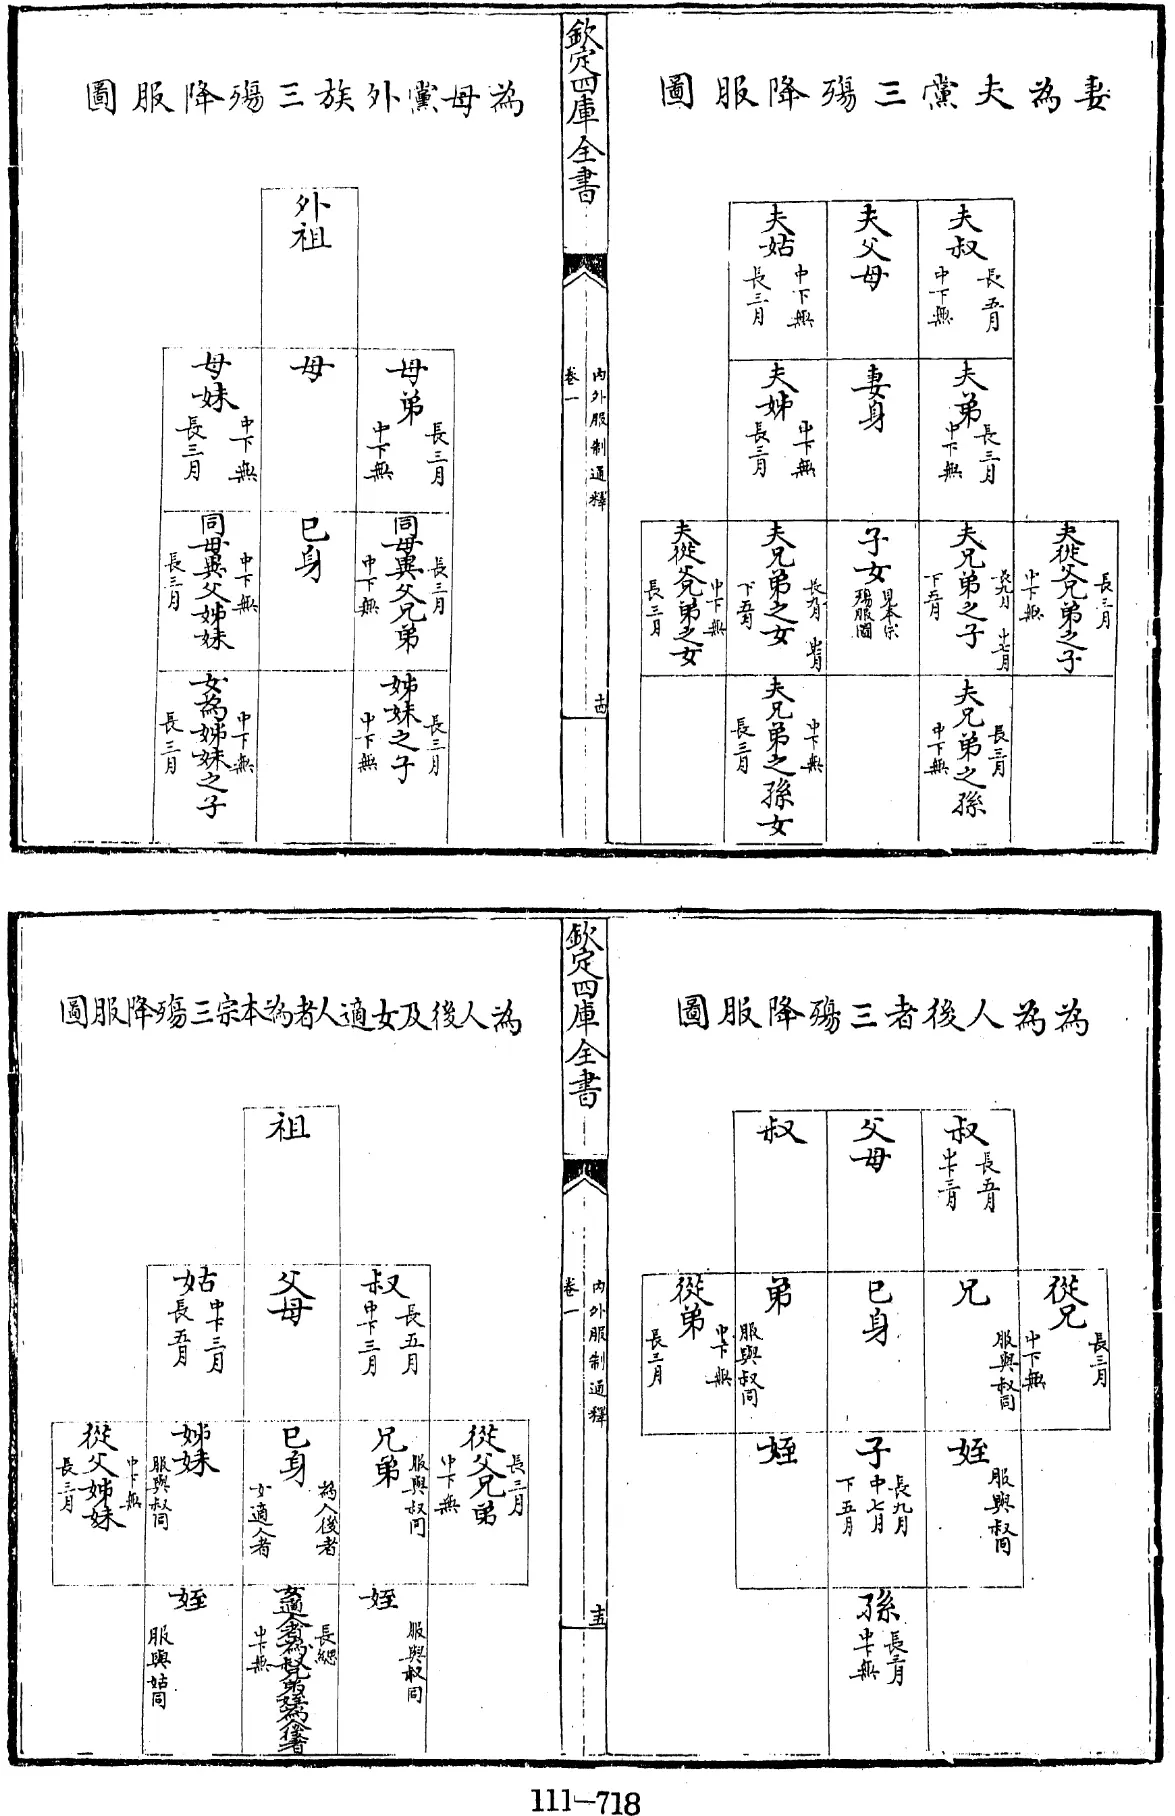 妻為夫黨三殤降服圖
夫叔
長五月
中下無
夫父母
夫姑
中下無
長三月
夫弟
長三月
中下無
妻身
夫姊
中下無
長三月
夫從父兄弟之子
長三月
中下無
夫兄弟之子
長九月
中七月
下五月
子女
見本宗
殤服圖
夫兄弟之女
長九月
中七月
下五月
夫從父兄弟之女
中下無
長三月
夫兄弟之孫
長三月
中下無
夫兄弟之孫女
中下無
長三月
欽定四庫全書
內外服制通釋
卷一
十四
為母黨外族三殤降服圖
外祖
母弟
長三月
中下無
母
母妹
中下無
長三月
同母異父兄弟
長三月
中下無
己身
同母異父姊妹
中下無
長三月
姊妹之子
長三月
中下無
女為姊妹之子
中下無
長三月
為為人後者三殤降服圖
叔
長五月
中下三月
父母
叔
從兄
長三月
中下無
兄
服與叔同
己身
弟
服與叔同
從弟
中下無
長三月
姪
服與叔同
子
長九月
中七月
下五月
姪
孫
長三月
中下無
欽定四庫全書
內外服制通釋
卷一
十五
為人後及女適人者為本宗三殤降服圖
祖
叔
長五月
中下三月
父母
姑
中下三月
長五月
從父兄弟
長三月
中下無
兄弟
服與叔同
己身
為人後者
女適人者
姊妹
服與叔同
從父姊妹
中下無
長三月
姪
服與叔同
長緦
中下無
姪
服與姑同
111-718